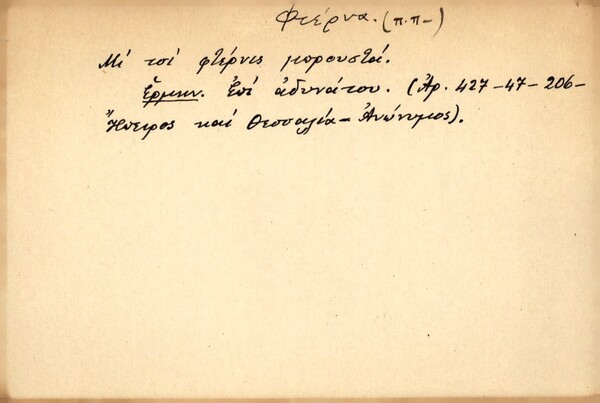 Φτέρνα. (π.π-)
Μί τσί φτέρνις μπρουστά.
Ἑρμην. Ἐπί ἀδυνάτου. (Ἀρ. 427-47-206-
Ἤπειρος καί Θεσσαλία-Ἀνώνυμος).